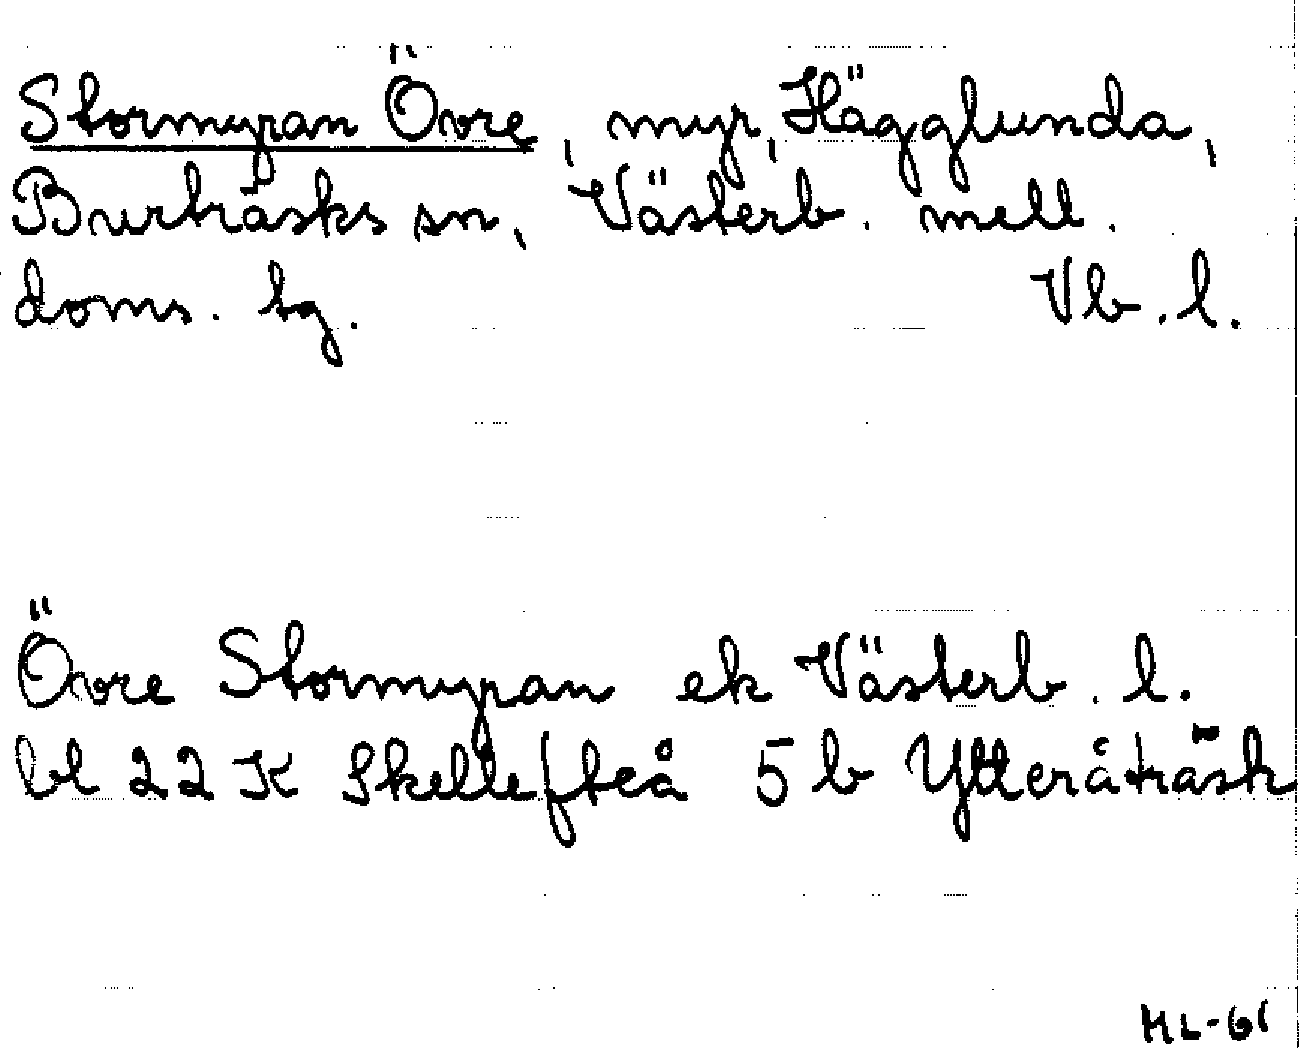 Stormyran Övre, myr, Hägglunda,
Burträsks sn, Västerb. mell.
doms. tg. Vb. l.
Övre Stormyran ek Västerb. l.
bl 22 K Skellefteå 5 b Ytteråträsk
ML-61